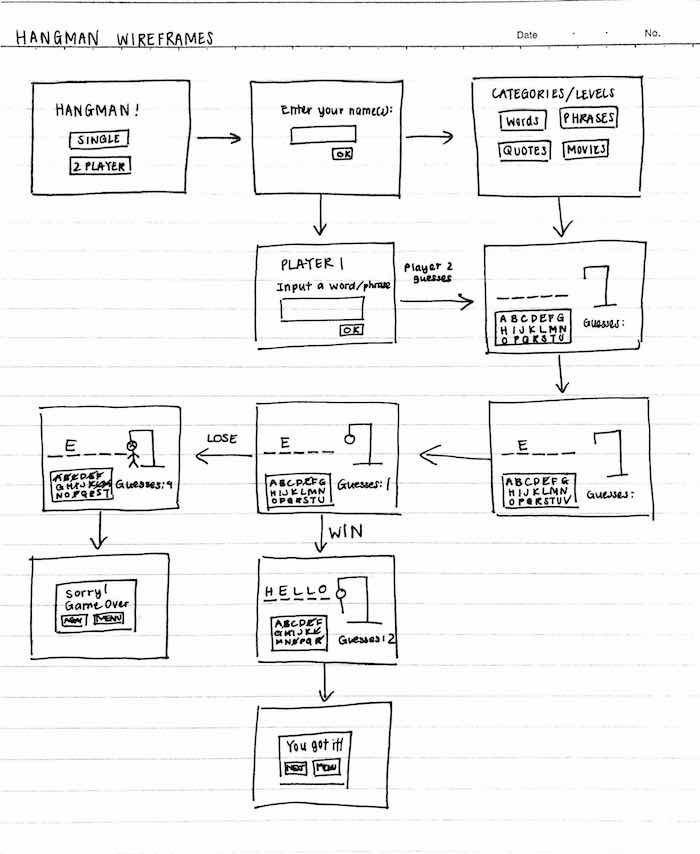 HANGMAN WIREFRAMES
Date . . No.
HANGMAN!
SINGLE
2 PLAYER
Enter your name(s):
OK
CATEGORIES/LEVELS
Words
PHRASES
QUOTES
MOVIES
PLAYER 1
Input a word/phrase
OK
Player 2
guesses
ABCDEFG
HIJKLMN
OPQRSTU
Guesses:
E
ABCDEFG
HIJKLMN
OPQRSTUV
Guesses:
E
ABCDEFG
HIJKLMN
OPQRSTU
Guesses: 1
LOSE
E
ABCDEF
GHIJKLM
NOPQRST
Guesses: 9
Sorry!
Game Over
MENU
WIN
HELLO
ABCDEF
GHIJKL
MNOPQR
Guesses: 2
You got it!
NEXT
MENU